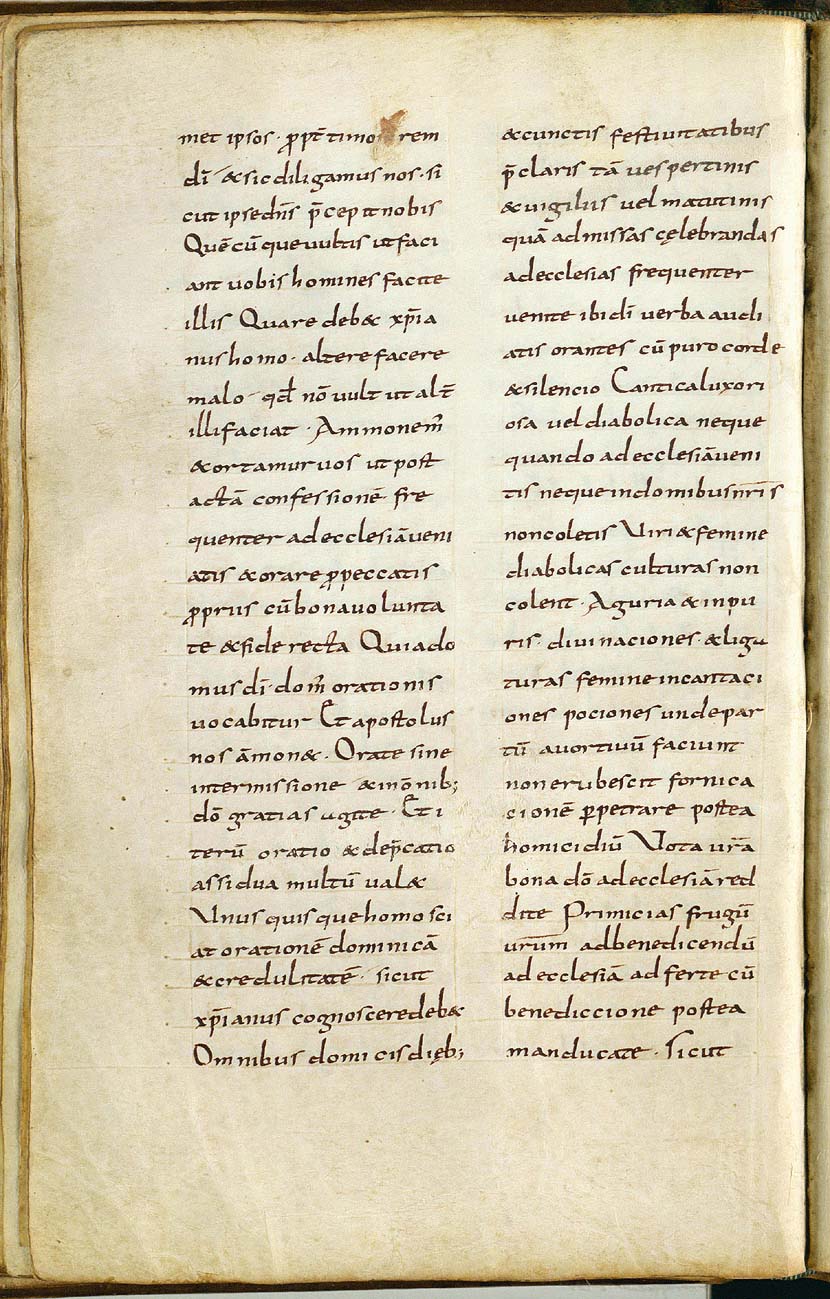 met ipsos · ꝓpt̄ timorem
dī · & sic diligamus nos · si
cut ipse dn̄s p̄cepit nobis
Quē cū que vultis ut faci
ant vobis homines facite
illis Quare deb& xp̄ia
nus homo · altere facere
malo · qd̄ nō vult ut alt̄
illi faciat · Ammonem̄
& ortamur vos ut post
actā confessionē fre
quenter ad ecclesiā veni
atis & orare ꝓ peccatis
ꝓpriis cū bona volunta
te & fide recta Quia do
mus dī · dom̄ orationis
vocabitur Et apostolus
nos āmon& · Orate sine
intermissione & in ōnib;
dō gratias agite · Et i
terū oratio & dep̄catio
assidua multū val&
Unus quis que homo sci
at orationē dominicā
& credulitatē · sicut
xp̄ianus cognoscere deb&
Omnibus domicis dięb;
& cunctis festivitatibus
p̄claris tā vespertinis
& vigiliis vel matutinis
quā ad missas cęlebrandas
ad ecclesias frequenter
venite ibi dī verba audi
atis orantes cū puro corde
& silencio Cantica luxori
osa vel diabolica neque
quando ad ecclesiā veni
tis neque in domibus nr̄is
non coletis Viri & femine
diabolicas culturas non
colent · Aguria & inpu
ris · divinaciones · & liga
turas femine incantaci
ones pociones unde par
tū avortivū faciunt
non erubescit fornica
cionē ꝑpetrare postea
homicidiū Vota vr̄a
bona dō ad ecclesiā red
dite Primicias frugū
urum̄ ad benedicendū
ad ecclesiā ad ferte cū
benediccione postea
manducate · sicut